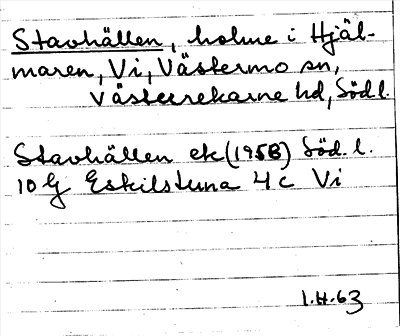 Stavhällen, holme i Hjäl-
maren, Vi, Västermo sn,
Västerrekarne hd, Södl.
Stavhällen ek (1958) Söd. l.
10 G Eskilstuna 4 c Vi
I.H.63